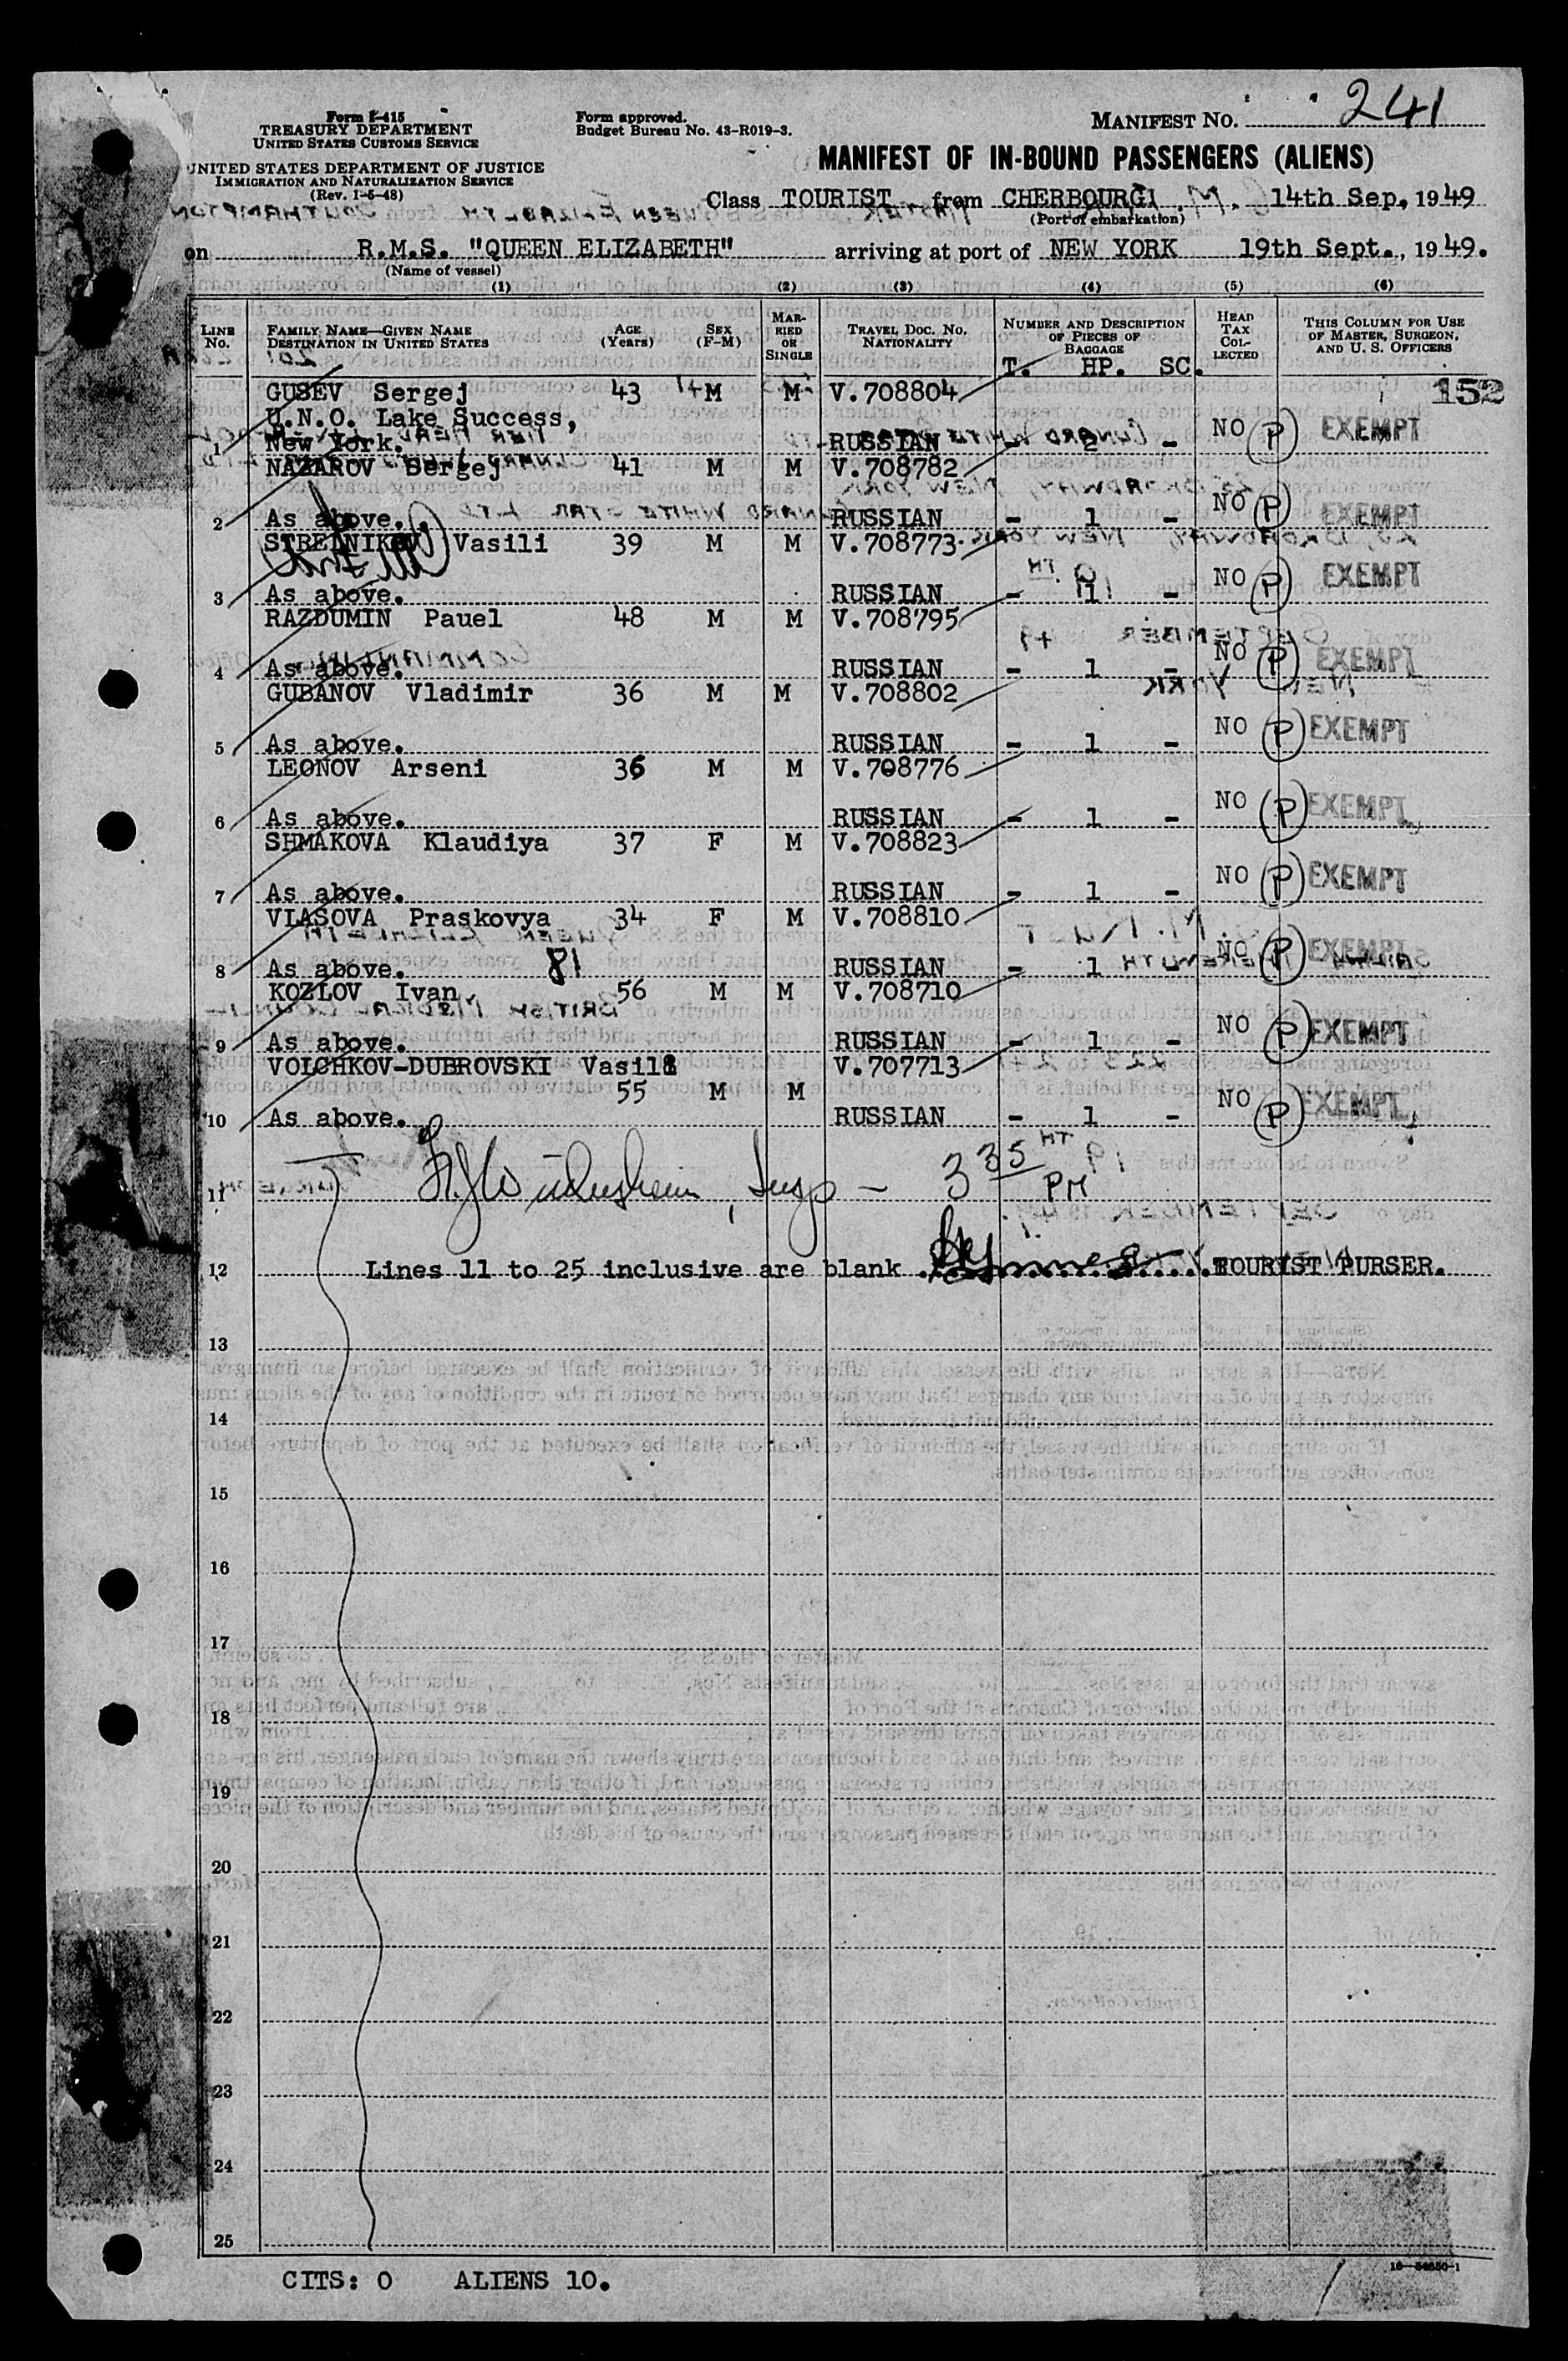 Form I-415
TREASURY DEPARTMENT
UNITED STATES CUSTOMS SERVICE
UNITED STATES DEPARTMENT OF JUSTICE
IMMIGRATION AND NATURALIZATION SERVICE
(Rev. 1-5-48)
Form approved.
Budget Bureau No. 43-R019-3.
MANIFEST NO. 241
MANIFEST OF IN-BOUND PASSENGERS (ALIENS)
Class TOURIST from CHERBOURG, 14th Sep, 1949
(Port of embarkation)
on R.M.S. "QUEEN ELIZABETH" arriving at port of NEW YORK 19th Sept., 1949.
(Name of vessel)
(1) (2) (3) (4) (5) (6)
LINE NO. FAMILY NAME—GIVEN NAME DESTINATION IN UNITED STATES AGE (Years) SEX (F-M) MARRIED OR SINGLE TRAVEL DOC. NO. NATIONALITY NUMBER AND DESCRIPTION OF PIECES OF BAGGAGE HEAD TAX COLLECTED THIS COLUMN FOR USE OF MASTER, SURGEON, AND U. S. OFFICERS
T. HP. SC.
152
GUSEV Sergej 43 M M V.708804
U.N.O. Lake Success,
1 New York. RUSSIAN - 2 - NO P EXEMPT
NAZAROV Sergej 41 M M V.708782
2 As above. RUSSIAN - 1 - NO P EXEMPT
STRELNIKOV Vasili 39 M M V.708773
3 As above. RUSSIAN - 1 - NO P EXEMPT
RAZDUMIN Pauel 48 M M V.708795
4 As above. RUSSIAN - 1 - NO P EXEMPT
GUBANOV Vladimir 36 M M V.708802
5 As above. RUSSIAN - 1 - NO P EXEMPT
LEONOV Arseni 36 M M V.708776
6 As above. RUSSIAN - 1 - NO P EXEMPT
SHMAKOVA Klaudiya 37 F M V.708823
7 As above. RUSSIAN - 1 - NO P EXEMPT
VLASOVA Praskovya 34 F M V.708810
8 As above. RUSSIAN - 1 - NO P EXEMPT
KOZLOV Ivan 56 M M V.708710
9 As above. RUSSIAN - 1 - NO P EXEMPT
VOLCHKOV-DUBROVSKI Vasili V.707713
55 M M
10 As above. RUSSIAN - 1 - NO P EXEMPT
11 Insp - 3 35 PM
12 Lines 11 to 25 inclusive are blank TOURIST PURSER.
13
14
15
16
17
18
19
20
21
22
23
24
25
CITS: 0 ALIENS 10.